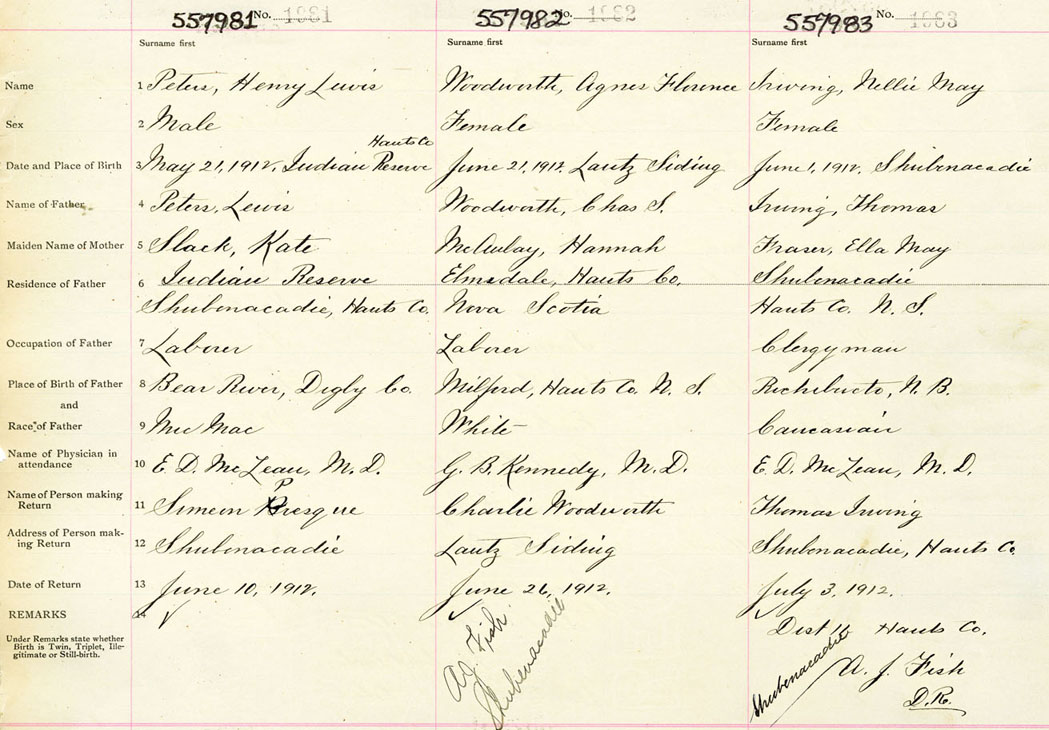 557981 No. 1961 557982 No. 1962 557983 No. 1963
Surname first Surname first Surname first
Name 1 Peters, Henry Lewis Woodworth, Agnes Florence Irving, Nellie May
Sex 2 Male Female Female
Hants Co
Date and Place of Birth 3 May 21, 1912, Indian Reserve June 21, 1912. Lantz Siding June 1, 1912, Shubenacadie
Name of Father 4 Peters, Lewis Woodworth, Chas S. Irving, Thomas
Maiden Name of Mother 5 Slack, Kate McAulay, Hannah Fraser, Ella May
Residence of Father 6 Indian Reserve Elmsdale, Hants Co. Shubenacadie
Shubenacadie, Hants Co. Nova Scotia Hants Co. N. S.
Occupation of Father 7 Laborer Laborer Clergyman
Place of Birth of Father 8 Bear River, Digby Co. Milford, Hants Co. N. S. Richibucto, N. B.
and
Race of Father 9 Mic Mac White Caucasian
Name of Physician in attendance 10 E. D. McLean, M. D. G. B. Kennedy, M. D. E. D. McLean, M. D.
Name of Person making Return 11 Simeon Presque Charlie Woodworth Thomas Irving
Address of Person making Return 12 Shubenacadie Lantz Siding Shubenacadie, Hants Co
Date of Return 13 June 10, 1912. June 26, 1912. July 3, 1912.
REMARKS 14
Under Remarks state whether
Birth is Twin, Triplet, Ille-
gitimate or Still-birth.
A. J. Fish
Shubenacadie
Dist 11 Hants Co.
Shubenacadie
A. J. Fish
D. R.